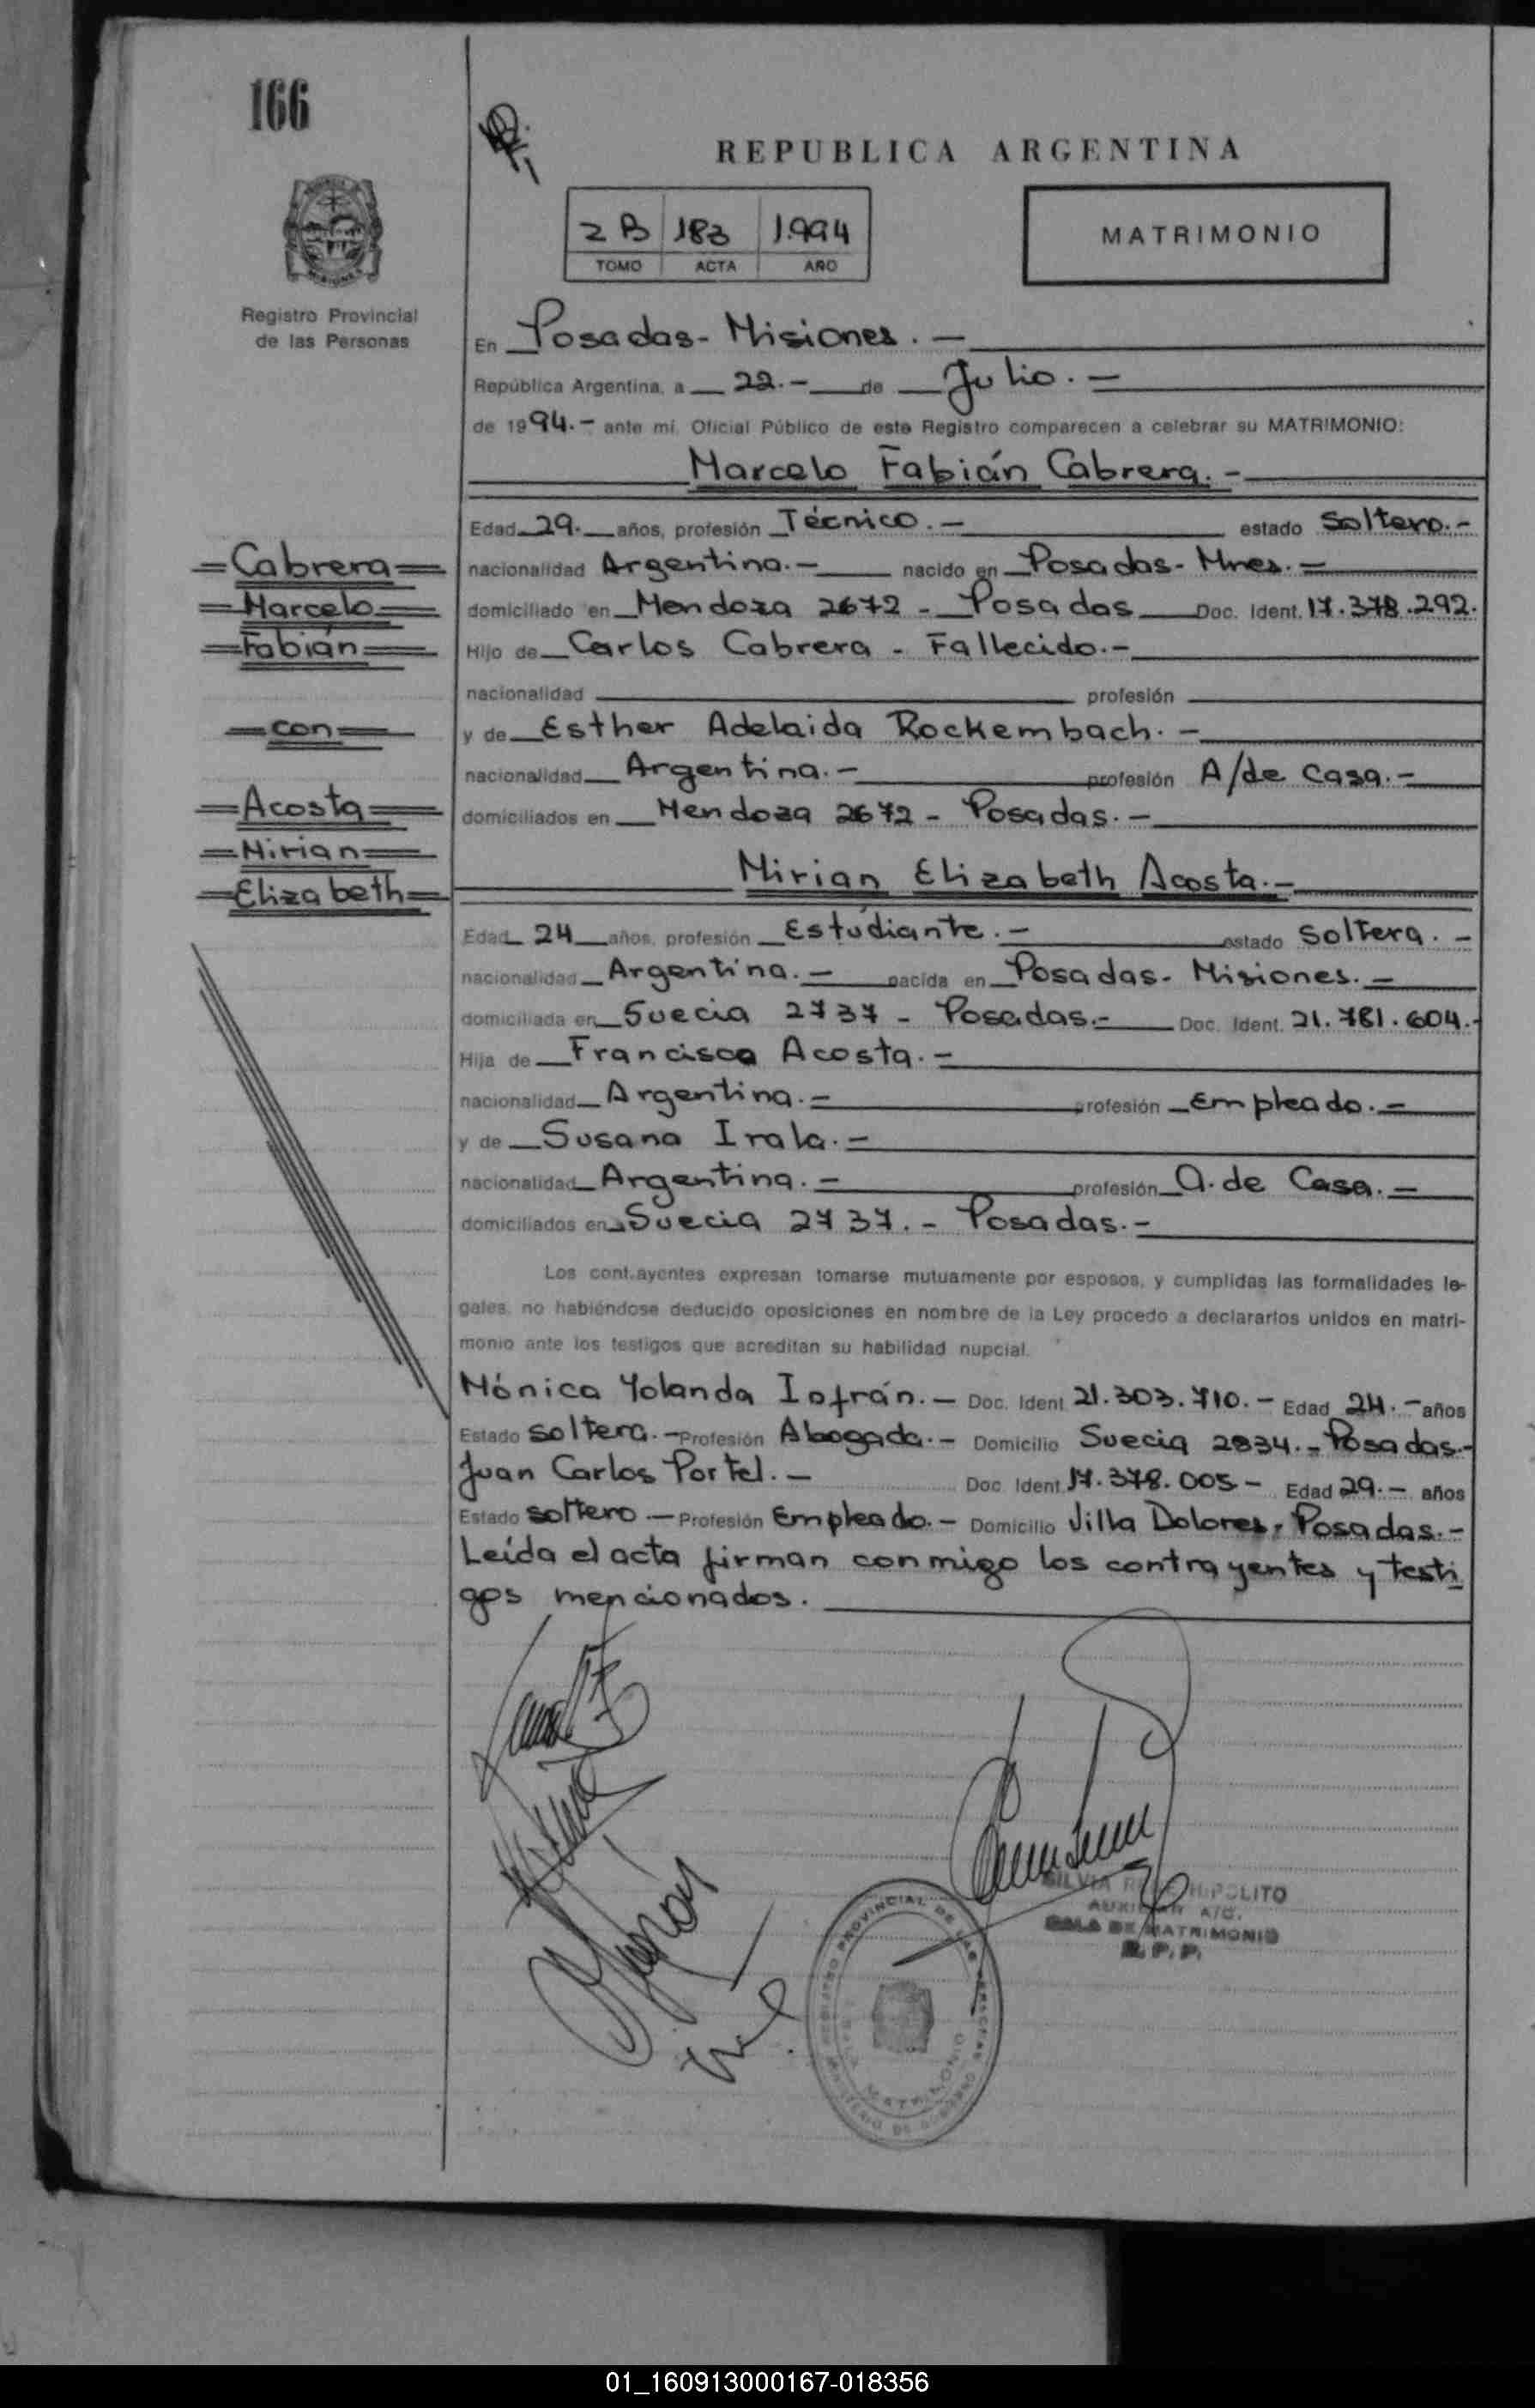 166
REPUBLICA ARGENTINA
2 B 183 1.994
TOMO ACTA AÑO
MATRIMONIO
Registro Provincial
de las Personas
En Posadas - Misiones. -
República Argentina, a 22.- de Julio. -
de 1994.- ante mí Oficial Público de este Registro comparecen a celebrar su MATRIMONIO:
Marcelo Fabián Cabrera. -
Edad 29. años, profesión Técnico. - estado Soltero.-
=Cabrera=
nacionalidad Argentina. - nacido en Posadas - Mnes. -
=Marcelo=
domiciliado en Mendoza 2672 - Posadas Doc. Ident. 17.378.292.
=Fabián=
Hijo de Carlos Cabrera - Fallecido.-
nacionalidad profesión
=con=
y de Esther Adelaida Rockembach. -
nacionalidad Argentina. - profesión A/de Casa. -
=Acosta=
domiciliados en Mendoza 2672 - Posadas. -
=Mirian=
=Elizabeth=
Mirian Elizabeth Acosta. -
Edad 24 años, profesión Estudiante. - estado Soltera. -
nacionalidad Argentina. - nacida en Posadas - Misiones. -
domiciliada en Suecia 2737 - Posadas.- Doc. Ident. 21.781.604.-
Hija de Francisco Acosta. -
nacionalidad Argentina. - profesión Empleado. -
y de Susana Irala. -
nacionalidad Argentina. - profesión A. de Casa. -
domiciliados en Suecia 2737. - Posadas. -
Los contrayentes expresan tomarse mutuamente por esposos, y cumplidas las formalidades le-
gales, no habiéndose deducido oposiciones en nombre de la Ley procedo a declararlos unidos en matri-
monio ante los testigos que acreditan su habilidad nupcial.
Mónica Yolanda Iofrán. - Doc. Ident 21.303.710. - Edad 24. - años
Estado Soltera. - Profesión Abogada. - Domicilio Suecia 2834. - Posadas.-
Juan Carlos Portel. - Doc. Ident. 17.378.005 - Edad 29. - años
Estado soltero - Profesión Empleado. - Domicilio Villa Dolores, Posadas. -
Leída el acta firman conmigo los contrayentes y testi
gos mencionados.
SILVIA HIPOLITO
AUXILIAR A/C.
SALA DE MATRIMONIO
R. P. P.
REGISTRO PROVINCIAL DE LAS PERSONAS
MINISTERIO DE GOBIERNO
MATRIMONIO
01_160913000167-018356